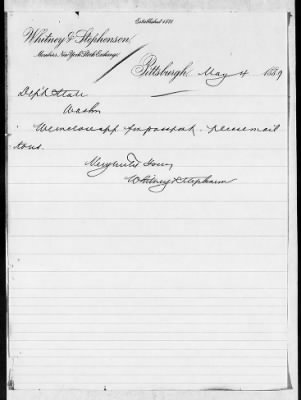 Established 1871
Whitney & Stephenson,
Members New York Stock Exchange.
Pittsburgh, May 4 1889
Dep't State
Washn
We enclose app for passport. please mail
to us.
Very truly Yours
Whitney & Stephenson